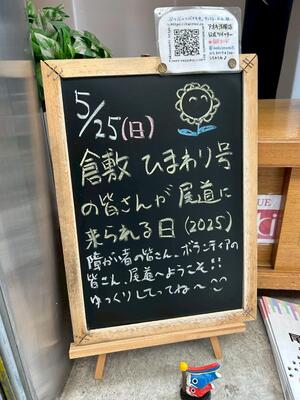 5/25(日)
倉敷 ひまわり号
の皆さんが 尾道に
来られる日 (2025)
障がい者の皆さん、ボランティアの
皆さん、尾道へようこそ!!
ゆっくりしてってね〜